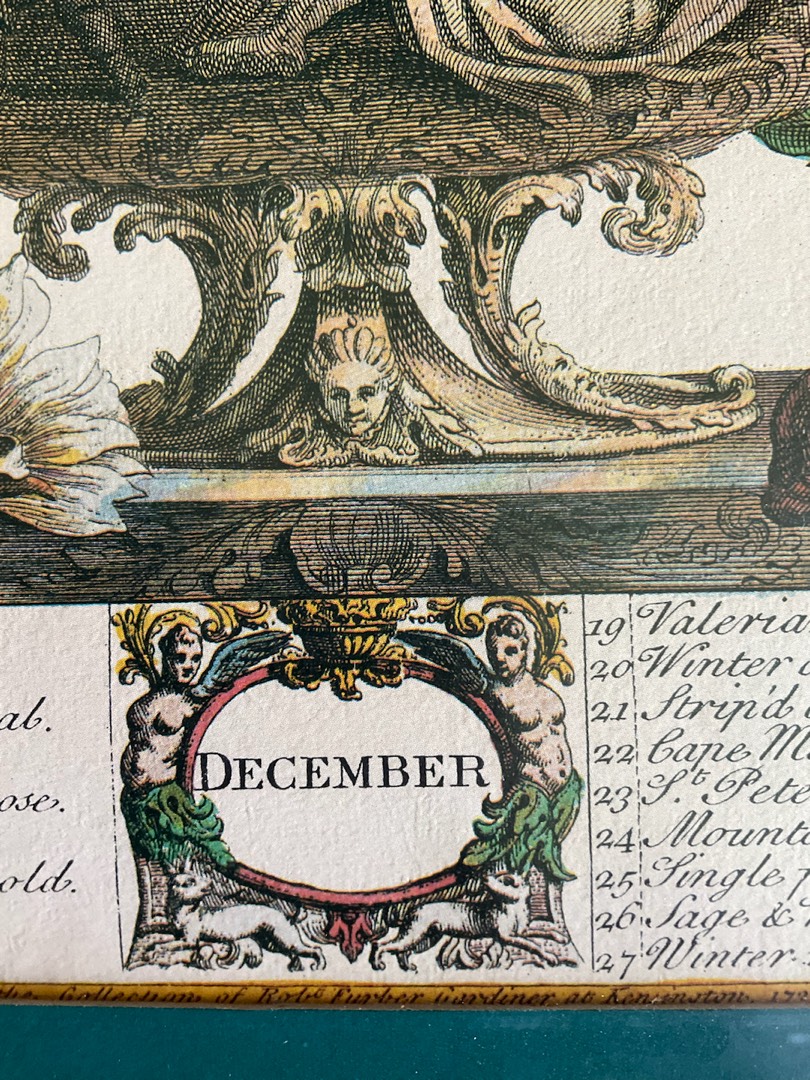 ab.
ose.
old.
DECEMBER
19 Valeria
20 Winter
21 Strip'd
22 Cape M
23 S.t Pete
24 Mounta
25 Single p
26 Sage &
27 Winter
the Collections of Robt. Furber Gardiner at Kensington. 17